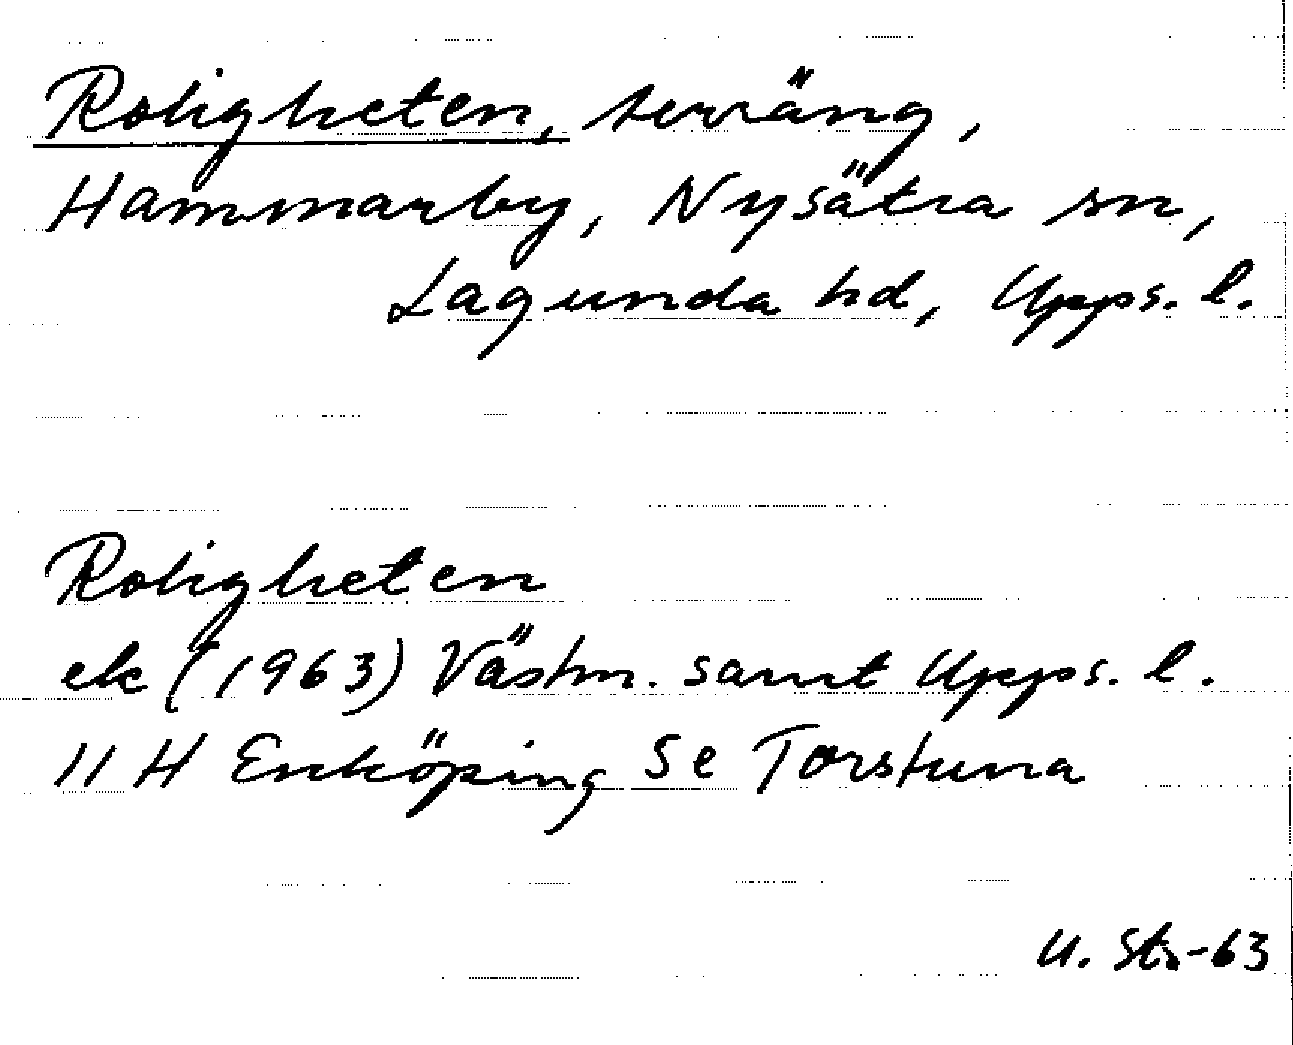 Roligheten, terräng,
Hammarby, Nysätra sn,
Lagunda hd, Upps. l.
Roligheten
ek (1963) Västm. samt Upps. l.
11 H Enköping Se Torstuna
U. Sts-63